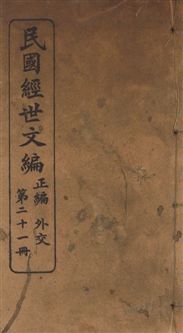 民國經世文編
正編 外交
第二十一冊